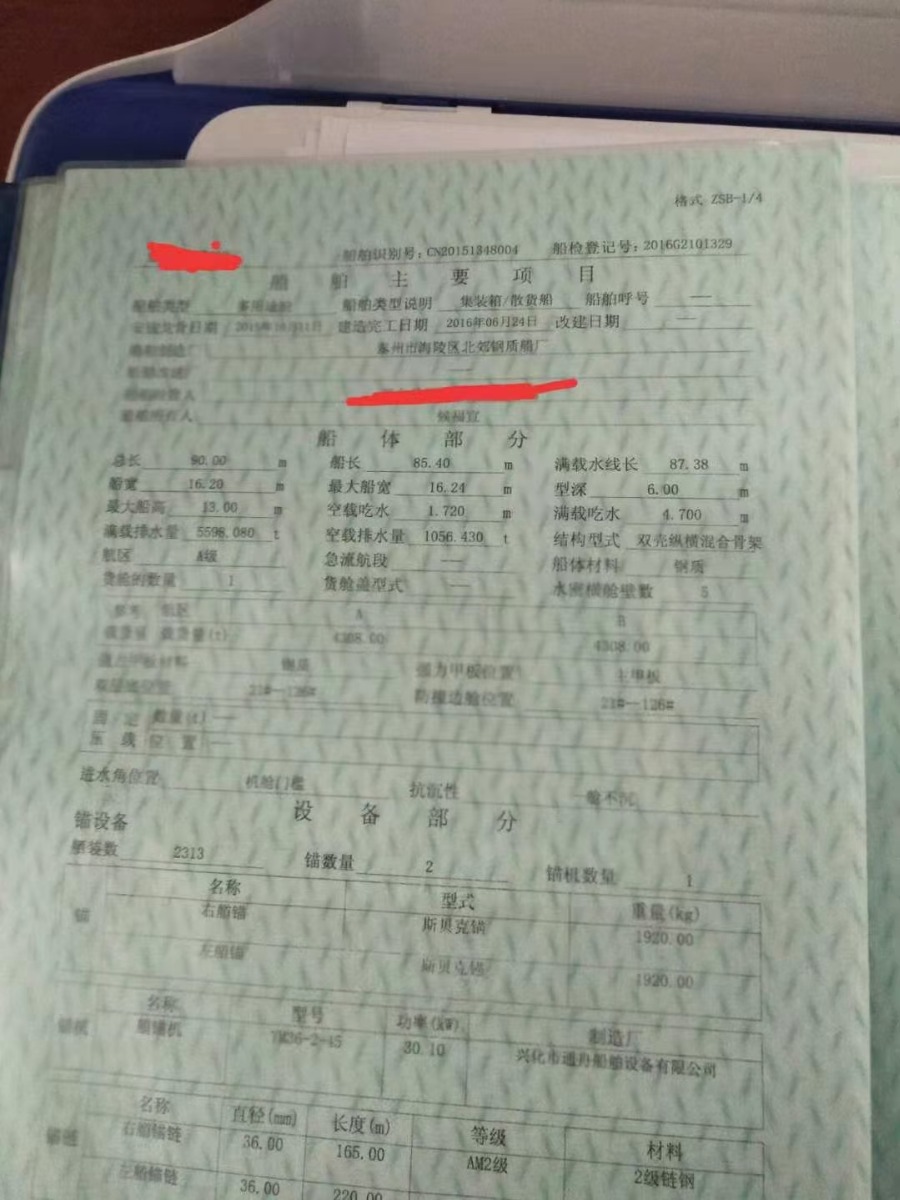 格式 ZSB-1/4
船舶识别号：CN20151348004 船检登记号：2016G2101329
船 舶 主 要 项 目
船舶类型 多用途船 船舶类型说明 集装箱/散货船 船舶呼号 ——
安放龙骨日期 建造完工日期 2016年06月24日 改建日期 ——
泰州市海陵区北郊钢质船厂
——
船舶所有人
船 体 部 分
总长 90.00 m 船长 85.40 m 满载水线长 87.38 m
船宽 16.20 m 最大船宽 16.24 m 型深 6.00 m
最大船高 13.00 m 空载吃水 1.720 m 满载吃水 4.700 m
满载排水量 5598.080 t 空载排水量 1056.430 t 结构型式 双壳纵横混合骨架
航区 A级 急流航段 —— 船体材料 钢质
货舱的数量 1 货舱盖型式 —— 水密横舱壁数 5
航区 A B
载货量(t) 4308.00 4308.00
强力甲板材料 钢质 强力甲板位置 主甲板
21#—126# 防撞边舱位置 21#—126#
固 定 数量(t) ——
压 载 位 置 ——
进水角位置 机舱门槛 抗沉性 舱不沉
设 备 部 分
锚设备
舾装数 2313 锚数量 2 锚机数量 1
名称 型式 重量(kg)
锚 右艏锚 斯贝克锚 1920.00
左艏锚 斯贝克锚 1920.00
名称 型号 功率(kW) 制造厂
锚机 艏锚机 YM36-2-45 30.10 兴化市通舟船舶设备有限公司
名称 直径(mm) 长度(m) 等级 材料
锚链 右艏锚链 36.00 165.00 AM2级 2级链钢
左艏锚链 36.00 220.00